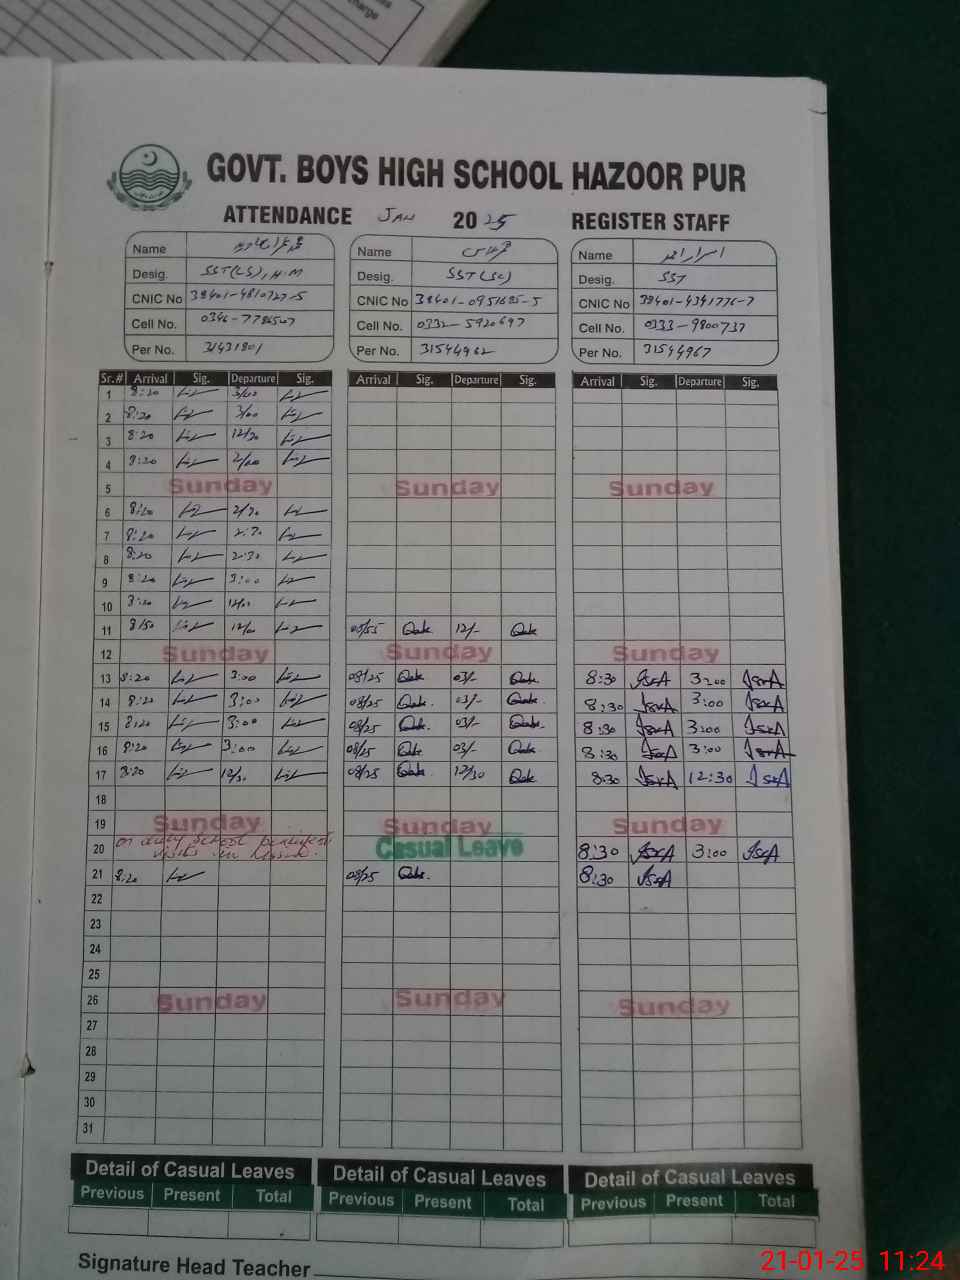 charge
GOVT. BOYS HIGH SCHOOL HAZOOR PUR
ATTENDANCE JAN 2025 REGISTER STAFF
Name Name Name اسرار احمد
Desig. SST(CS), H.M Desig. SST(SC) Desig. SST
CNIC No 38401-4810727-5 CNIC No 38401-0951685-5 CNIC No 38401-4341776-7
Cell No. 0346-7786507 Cell No. 0332-5920697 Cell No. 0333-9800737
Per No. 31431801 Per No. 31544962 Per No. 31544967
Sr.# Arrival Sig. Departure Sig. Arrival Sig. Departure Sig. Arrival Sig. Departure Sig.
1 8:20 3/00
2 8:20 3/00
3 8:20 12/30
4 8:20 2/00
5 Sunday Sunday Sunday
6 8:20 2/30
7 8:20 2:30
8 8:20 2:30
9 8:20 3:00
10 8:20 12/00
11 8/50 12/00 08/55 12/-
12 Sunday Sunday Sunday
13 8:20 3:00 08/25 03/- 8:30 3:00
14 8:20 3:00 08/25 03/- 8:30 3:00
15 8:20 3:00 08/25 03/- 8:30 3:00
16 8:20 3:00 08/25 03/- 8:30 3:00
17 8:20 12/30 08/25 12/30 8:30 12:30
18
19 Sunday Sunday Sunday
20 on duty School visits in Casual Leave 8:30 3:00
21 8:20 08/25 8:30
22
23
24
25
26 Sunday Sunday Sunday
27
28
29
30
31
Detail of Casual Leaves Detail of Casual Leaves Detail of Casual Leaves
Previous Present Total Previous Present Total Previous Present Total
Signature Head Teacher
21-01-25 11:24